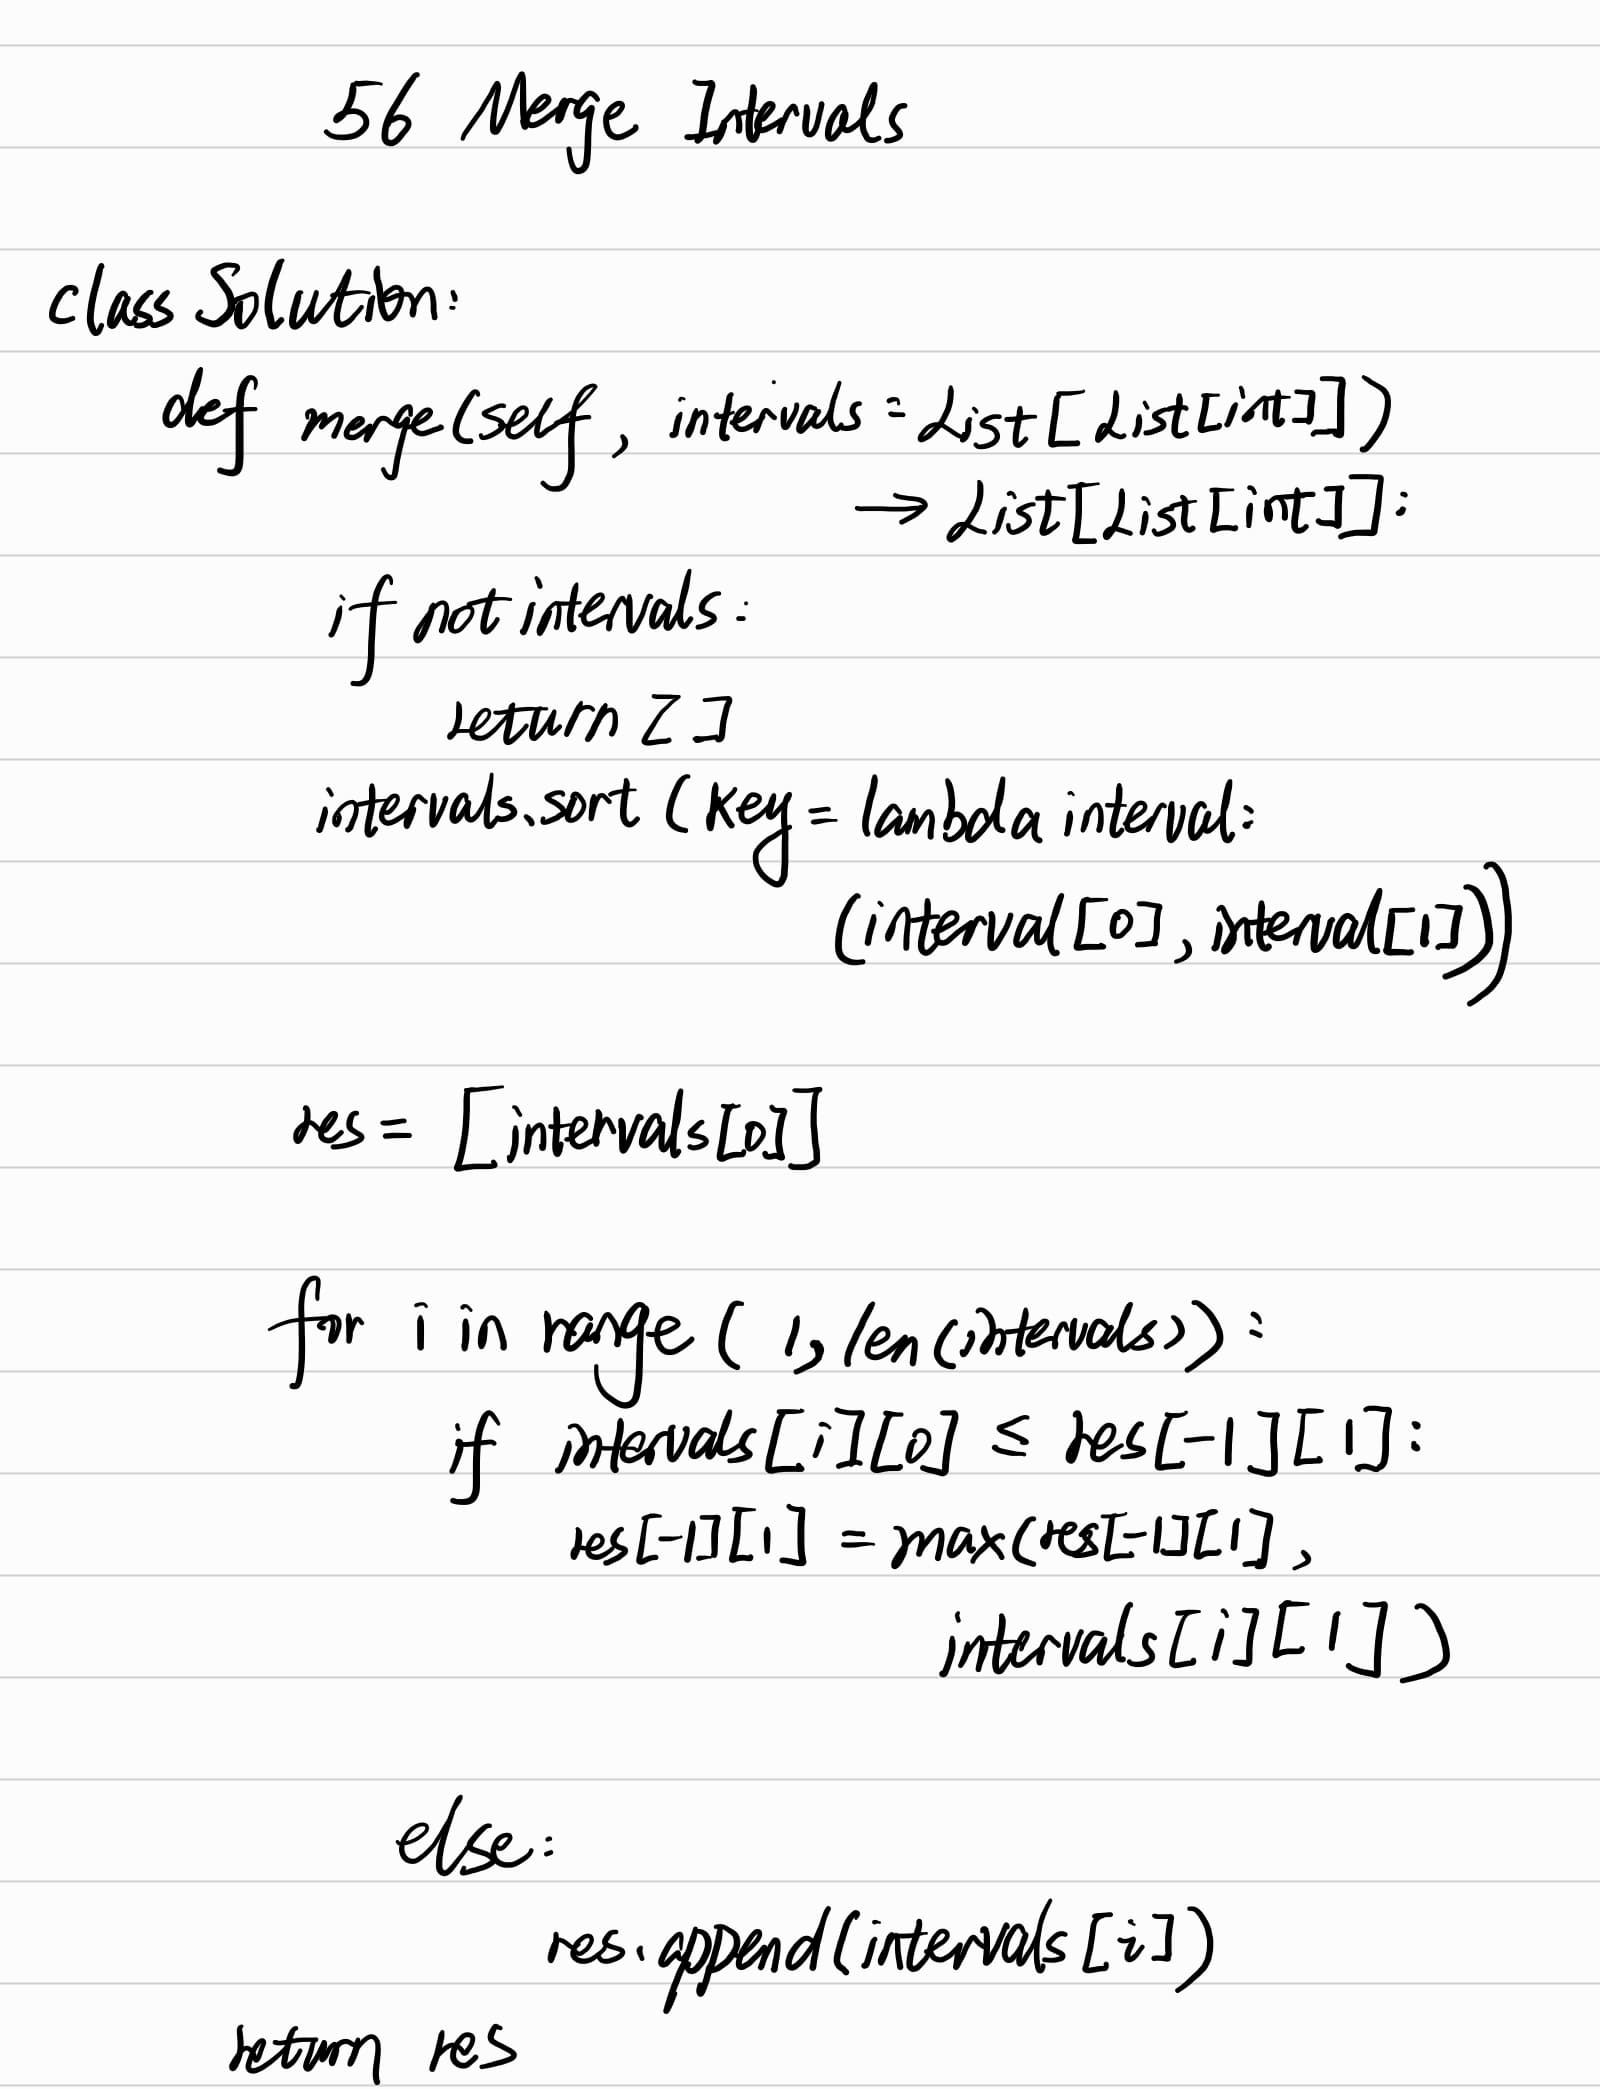 56 Merge Intervals
class Solution:
def merge(self, intervals: List[List[int]])
→ List[List[int]]:
if not intervals:
return []
intervals.sort (key = lambda interval:
(interval[0], interval[1]))
res = [intervals[0]]
for i in range ( 1, len(intervals)):
if intervals[i][0] ≤ res[-1][1]:
res[-1][1] = max(res[-1][1],
intervals[i][1])
else:
res.append(intervals[i])
return res